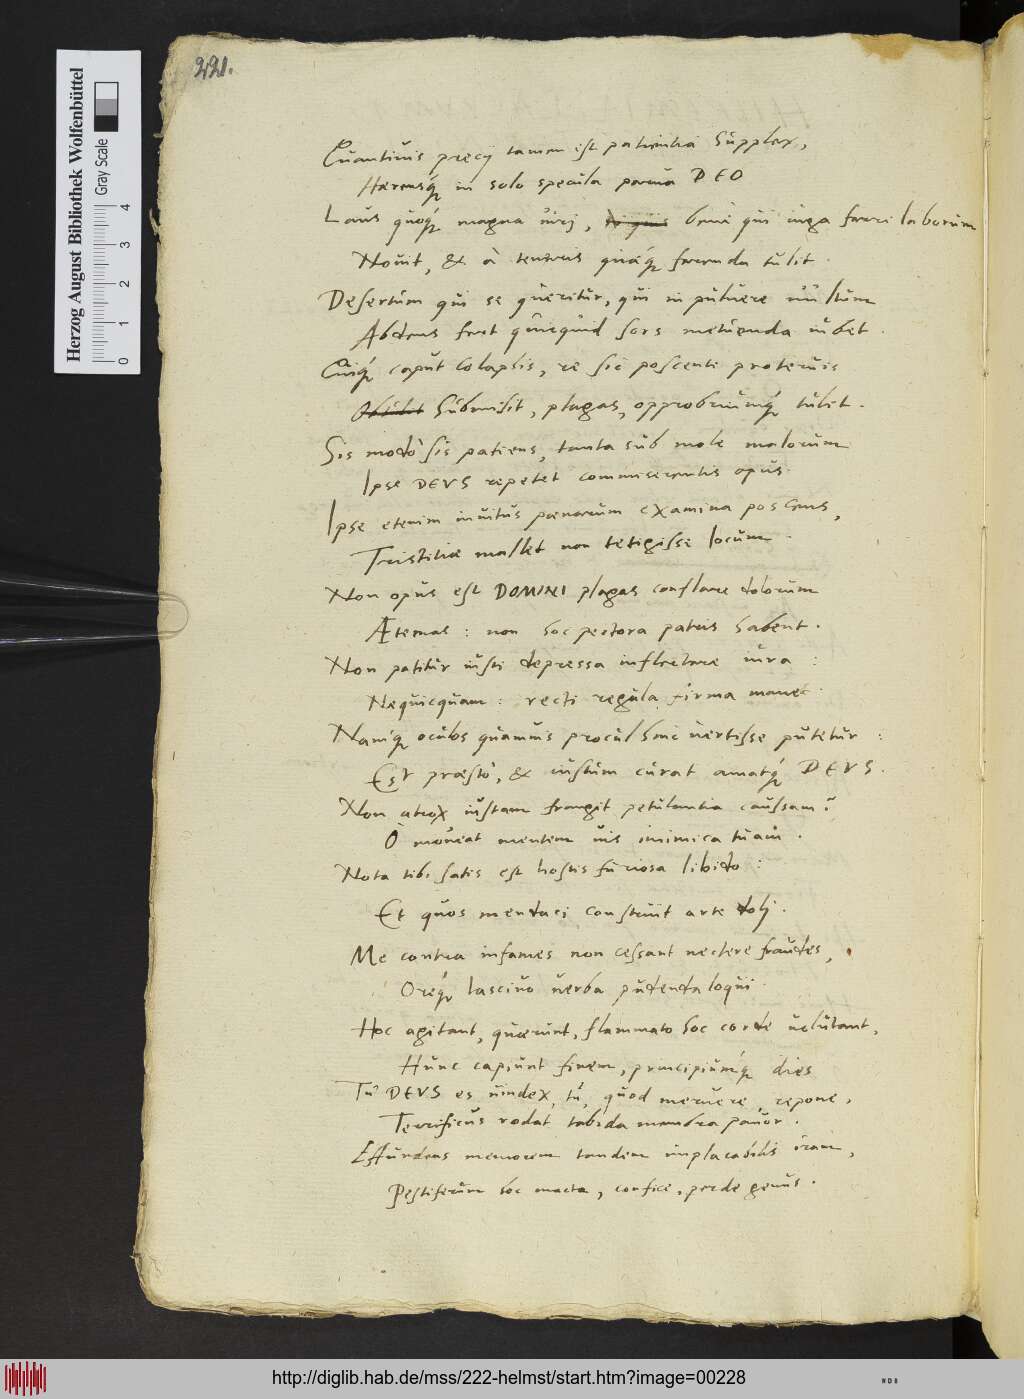 221.
Quantivis precij tamen est patientia supplex,
Haerensq́ in solo specula parva DEO
Laus quoq́ magna viri, bene qui iuga ferre laborum
Novit, & à teneris quáq́ ferenda tulit.
Desertum qui se queritur, qui in pulvere vultum
Abdens fert quicquid sors metuenda iubet.
Cuiq́ caput colaphis, re sic poscente protervis
Submisit, plagas, opprobriumq́ tulit.
Sis modò sis patiens, tanta sub mole malorum
Ipse DEVS repetet commiserentis opus.
Ipse etenim invitus poenarum examina poscens,
Tristitiae mallet non tetigisse locum.
Non opus est DOMINI plagas conflare dolorum
Aeternas: non hoc pectora patris habent.
Non patitur iusti depressa inflectere iura:
Nequicquam: recti regula firma manet.
Namq́ oculos quamvis procul hinc vertisse putetur:
Est praestò, & iustum curat amatq́ DEVS.
Non atrox iustam frangit petulantia caussam?
O moveat mentem vis inimica tuam.
Nota tibi satis est hostis furiosa libido:
Et quos mendaci construit arte dolj.
Me contra infames non cessant nectere fraudes,
Oreq́ lascivo verba pudenda loqui.
Hoc agitant, quaerunt, flammato hoc corde volutant,
Hunc capiunt finem, principiumq́ dies
Tu DEVS es vindex, tu, quod meruere, repone,
Terrificus rodat tabida membra pavor.
Effundens memorem tandem implacabilis iram,
Pestiferum hoc macta, confice, perde genus.
Herzog August Bibliothek Wolfenbüttel
Gray Scale
0 1 2 3 4
http://diglib.hab.de/mss/222-helmst/start.htm?image=00228